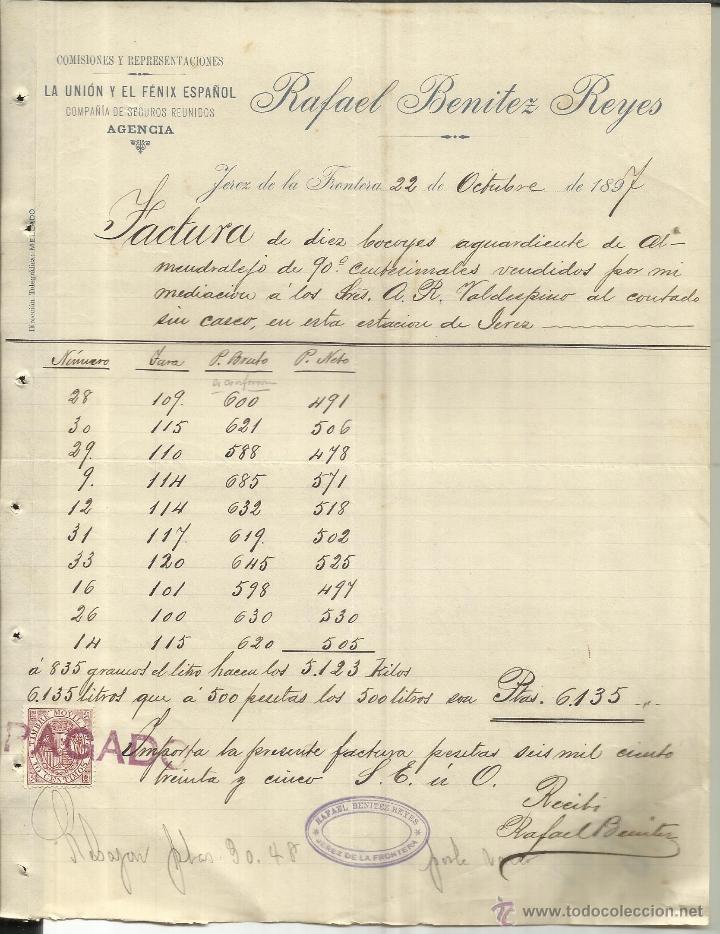 COMISIONES Y REPRESENTACIONES
LA UNIÓN Y EL FÉNIX ESPAÑOL
COMPAÑÍA DE SEGUROS REUNIDOS
AGENCIA
Rafael Benitez Reyes
Jerez de la Frontera 22 de Octubre de 1897
Dirección Telegráfica: MELGADO
Factura de diez bocoyes aguardiente de Al-
mendralejo de 90º centesimales vendidos por mi
mediacion á los Sres. A. R. Valdespino al contado
sin casco, en esta estacion de Jerez
Número Tara P. Bruto P. Neto
28 109 600 491
30 115 621 506
29 110 588 478
9 114 685 571
12 114 632 518
31 117 619 502
33 120 645 525
16 101 598 497
26 100 630 530
14 115 620 505
á 835 gramos el litro hacen los 5.123 Kilos
6.135 litros que á 500 pesetas los 500 litros son Ptas. 6.135
TIMBRE MÓVIL
10 CENTIMOS
PAGADO
Importa la presente factura pesetas seis mil ciento
treinta y cinco S. E. ú O.
Recibí
Rafael Benitez
RAFAEL BENITEZ REYES
JEREZ DE LA FRONTERA
Rebajan ptas. 30.48
www.todocoleccion.net